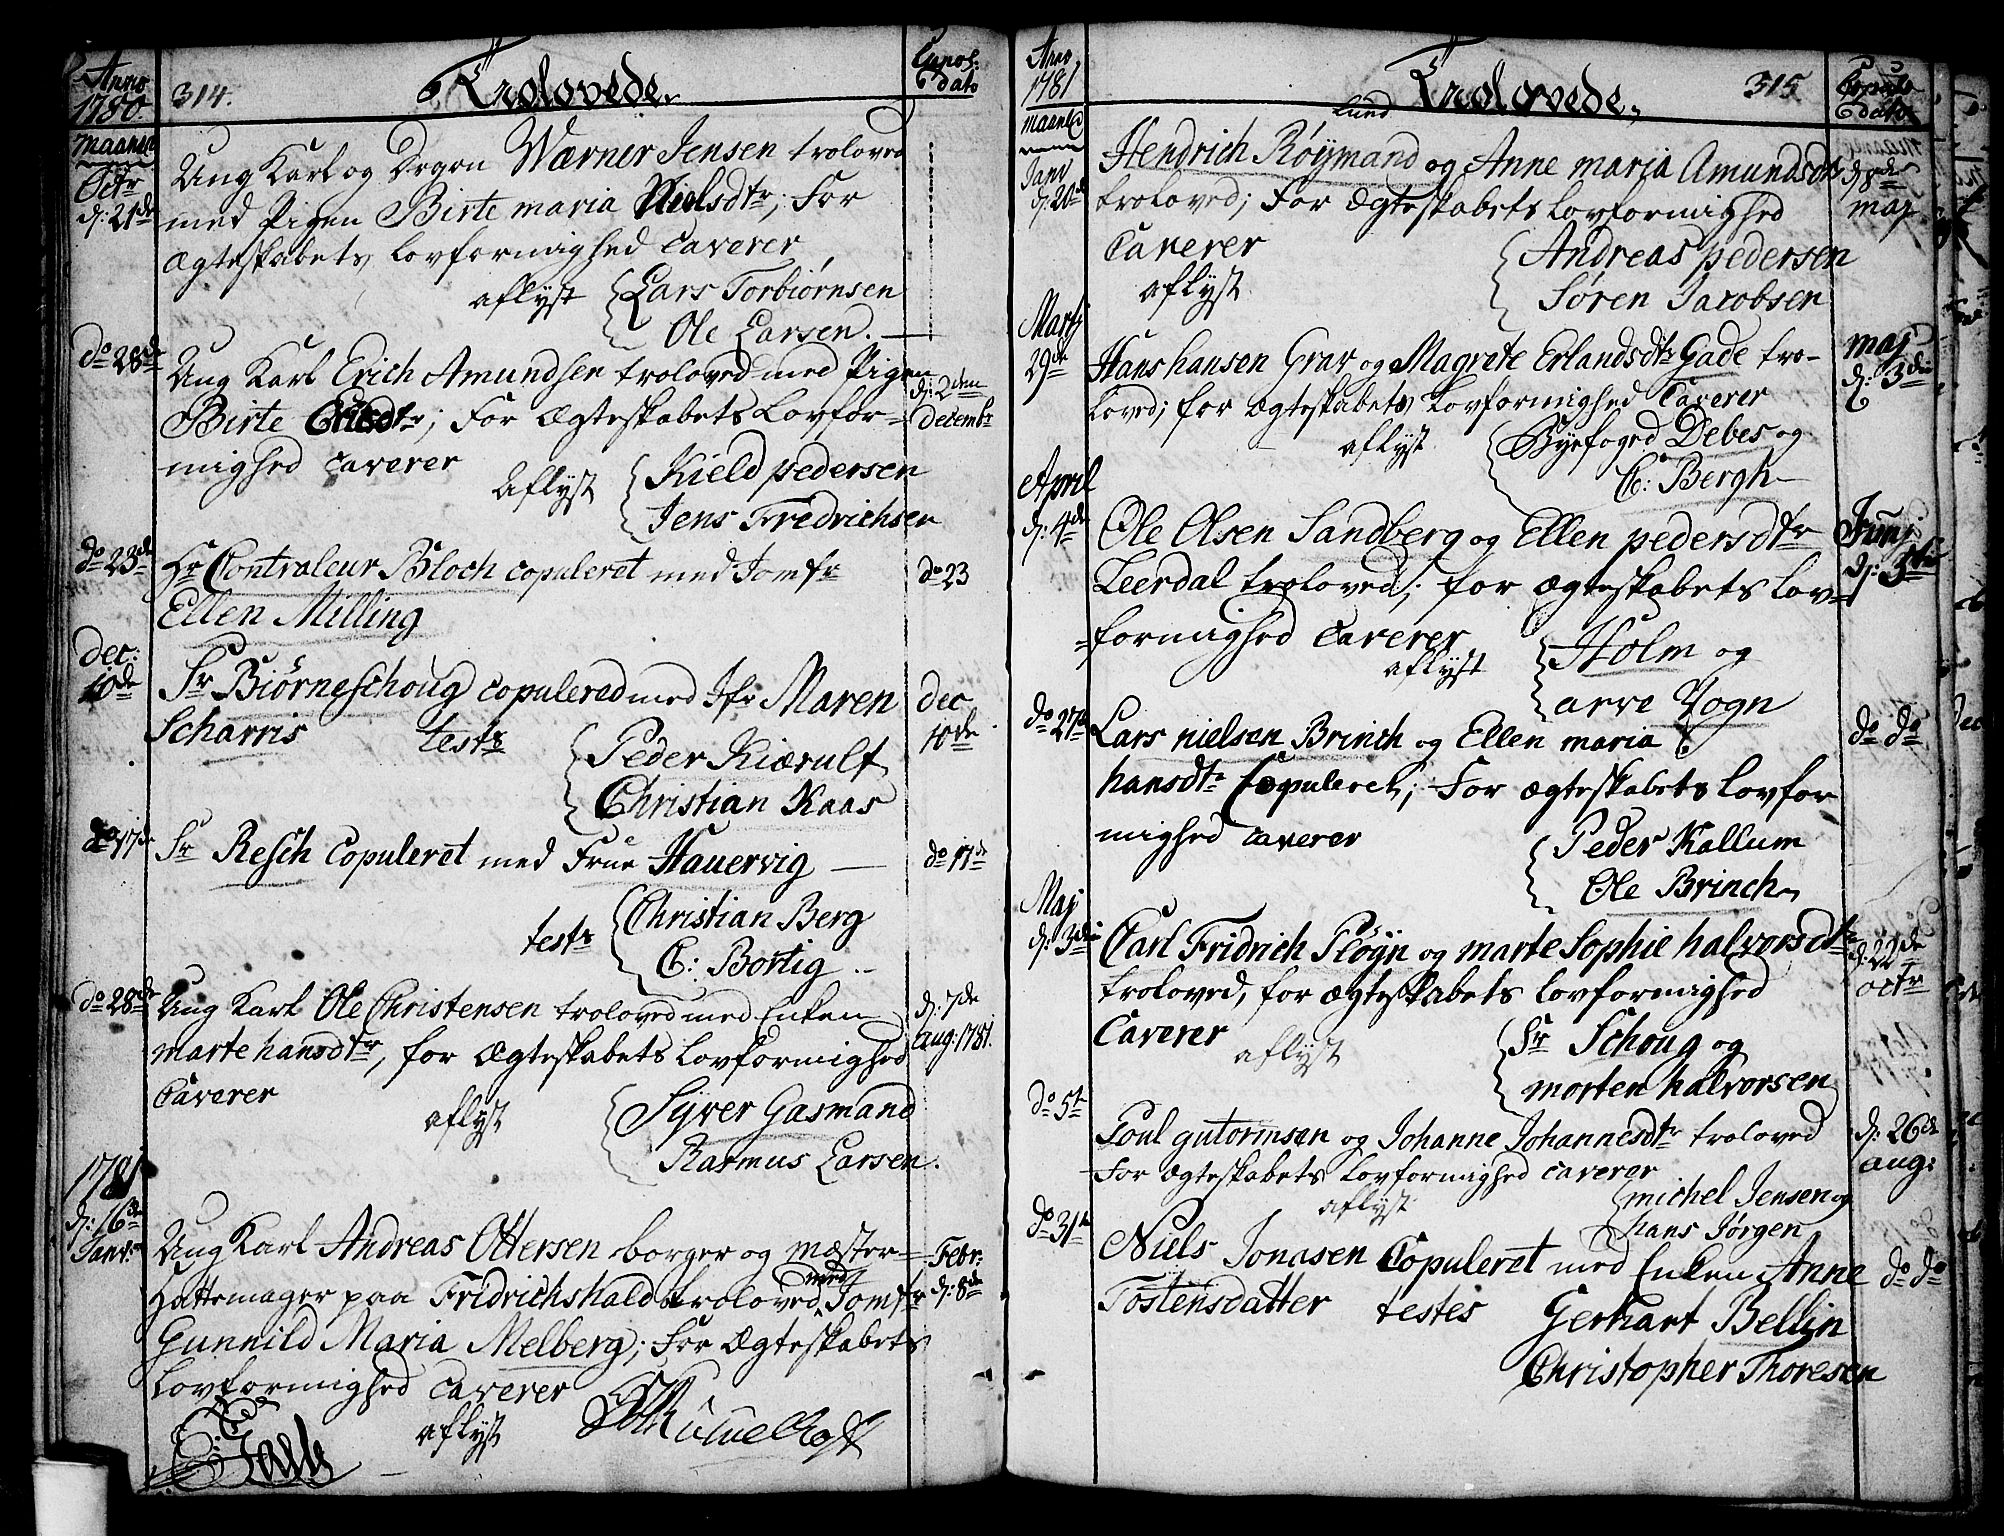 Anno 1780. 314. Trolovede. Copul: dato
Maaned
Octr d: 21de Ung Karl og Degen Wærner Jensen troloved
med Pigen Birte maria Nielsdtr; For
Ægteskabets lovformighed Caverer
aflyst Lars Torbiørnsen
Ole Larsen.
do 28de Ung Karl Erich Amundsen troloved med Pigen
Birte Erichsdtr; For Ægteskabets Lovfor- d: 2den Decembr
mighed caverer
Aflyst Kield pedersen
Jens Fredrichsen
do 23de Hr Contraleur Bloch copuleret med Jomfr do 23
Ellen Milling
Dec: 10de Sr Biørneschoug copulered med Jfr Maren Dec 10de
Scharris test: Peder Kiærulf
Christian Kaas
do 17de Sr Resch Copuleret med Frue Hauervig do 17de
test: Christian Berg
C: Bortig
do 28de Ung Karl Ole Christensen troloved med Enken d: 7de
marte hansdtr, for Ægteskabets lovformighed aug: 1781.
Caverer
aflyst Syver Gasmand
Rasmus Larsen.
1781
d: 16de Janv: Ung Karl Andreas Ottersen borger og mæster- Febr: d: 8de
Hattemager paa Fridrichshald troloved med Jomfr
Gunnild Maria Melberg; For Ægteskabets
lovformighed caverer
aflyst
Anno 1781 Trolovede, 315 Copula dato
maaned lund
Janv d: 20de Hendrich Røÿmand og Anne maria Amundsdtr d: 8de maj
troloved; For Ægteskabets lovformighed
Caverer Andreas pedersen
aflyst Søren Jacobsen
Martj 29de Hans hansen Grar og Magrete Erlandsdtr Gade tro- maj d: 3die
loved; for Ægteskabets lovformighed Caverer
aflyst Byefoged Debes og
C: Bergh
April d: 4de Ole Olsen Sandberg og Ellen pedersdtr Junj d: 3die
Leerdal troloved; for Ægteskabets lov-
formighed Caverer Holm og
aflyst arve Vogn
do 27de Lars nielsen Brinch og Ellen maria do do
hansdtr Copuleret; For ægteskabets lovfor
mighed caverer
Peder Kallum
Ole Brinch
Maj d: 3die Carl Fridrich Pløÿn og marte Sophie halvorsdtr d: 22de octr
troloved, for ægteskabets lovformighed
Caverer Sr Schoug og
aflyst morten halvorsen
do 5te Poul gutormsen og Johanne Johannesdtr troloved d: 26de aug:
For ægteskabets lovformighed caverer
aflyst michel Jensen og
hans Jørgen
do 31te Niels Jonasen Copuleret med Enken Anne do do
Tostensdatter testes Gerhart Bellin
Christopher Thoresen